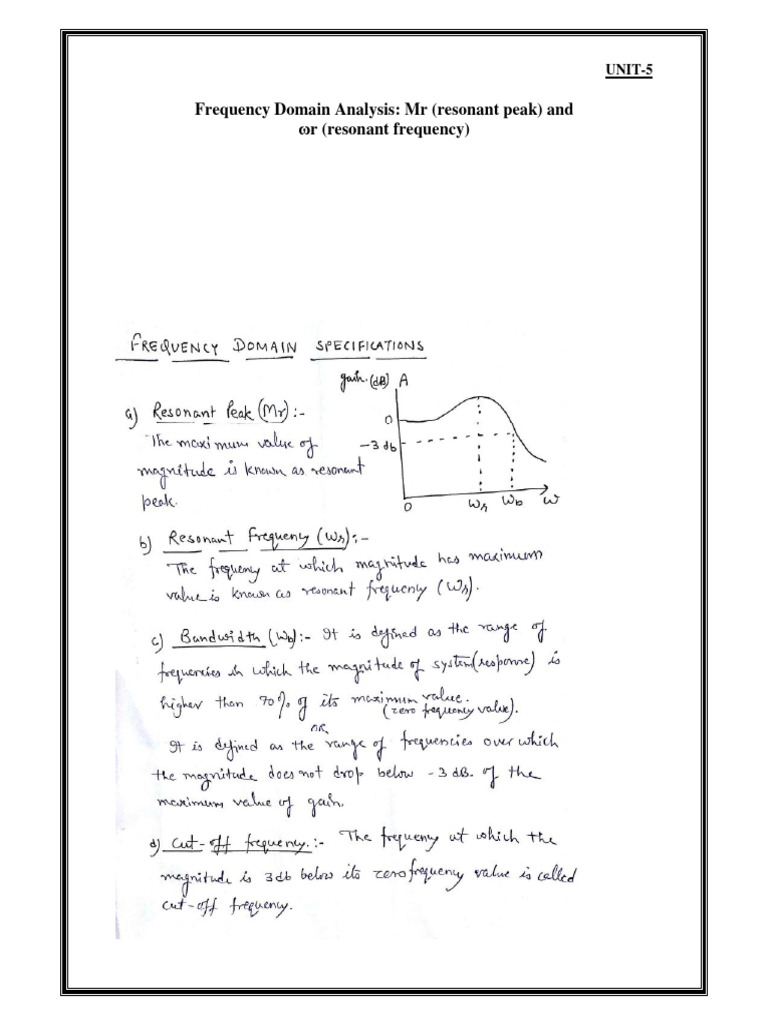 UNIT-5
Frequency Domain Analysis: Mr (resonant peak) and
ωr (resonant frequency)
FREQUENCY DOMAIN SPECIFICATIONS
gain (dB) A
0
-3 db
0 ωr ωb ω
a) Resonant Peak (Mr):-
The maximum value of
magnitude is known as resonant
peak.
b) Resonant Frequency (ωr):-
The frequency at which magnitude has maximum
value is known as resonant frequency (ωr).
c) Bandwidth (ωb):- It is defined as the range of
frequencies in which the magnitude of system (response) is
higher than 70% of its maximum value.
(zero frequency value).
OR
It is defined as the range of frequencies over which
the magnitude does not drop below -3 dB. of the
maximum value of gain.
d) Cut-off frequency.:- The frequency at which the
magnitude is 3db below its zero frequency value is called
cut-off frequency.